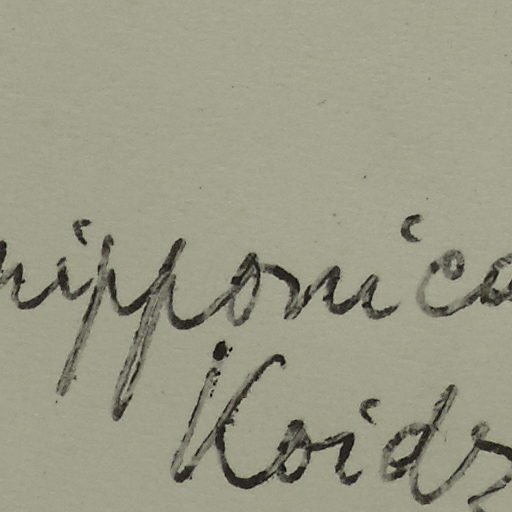 nipponica
Koidz